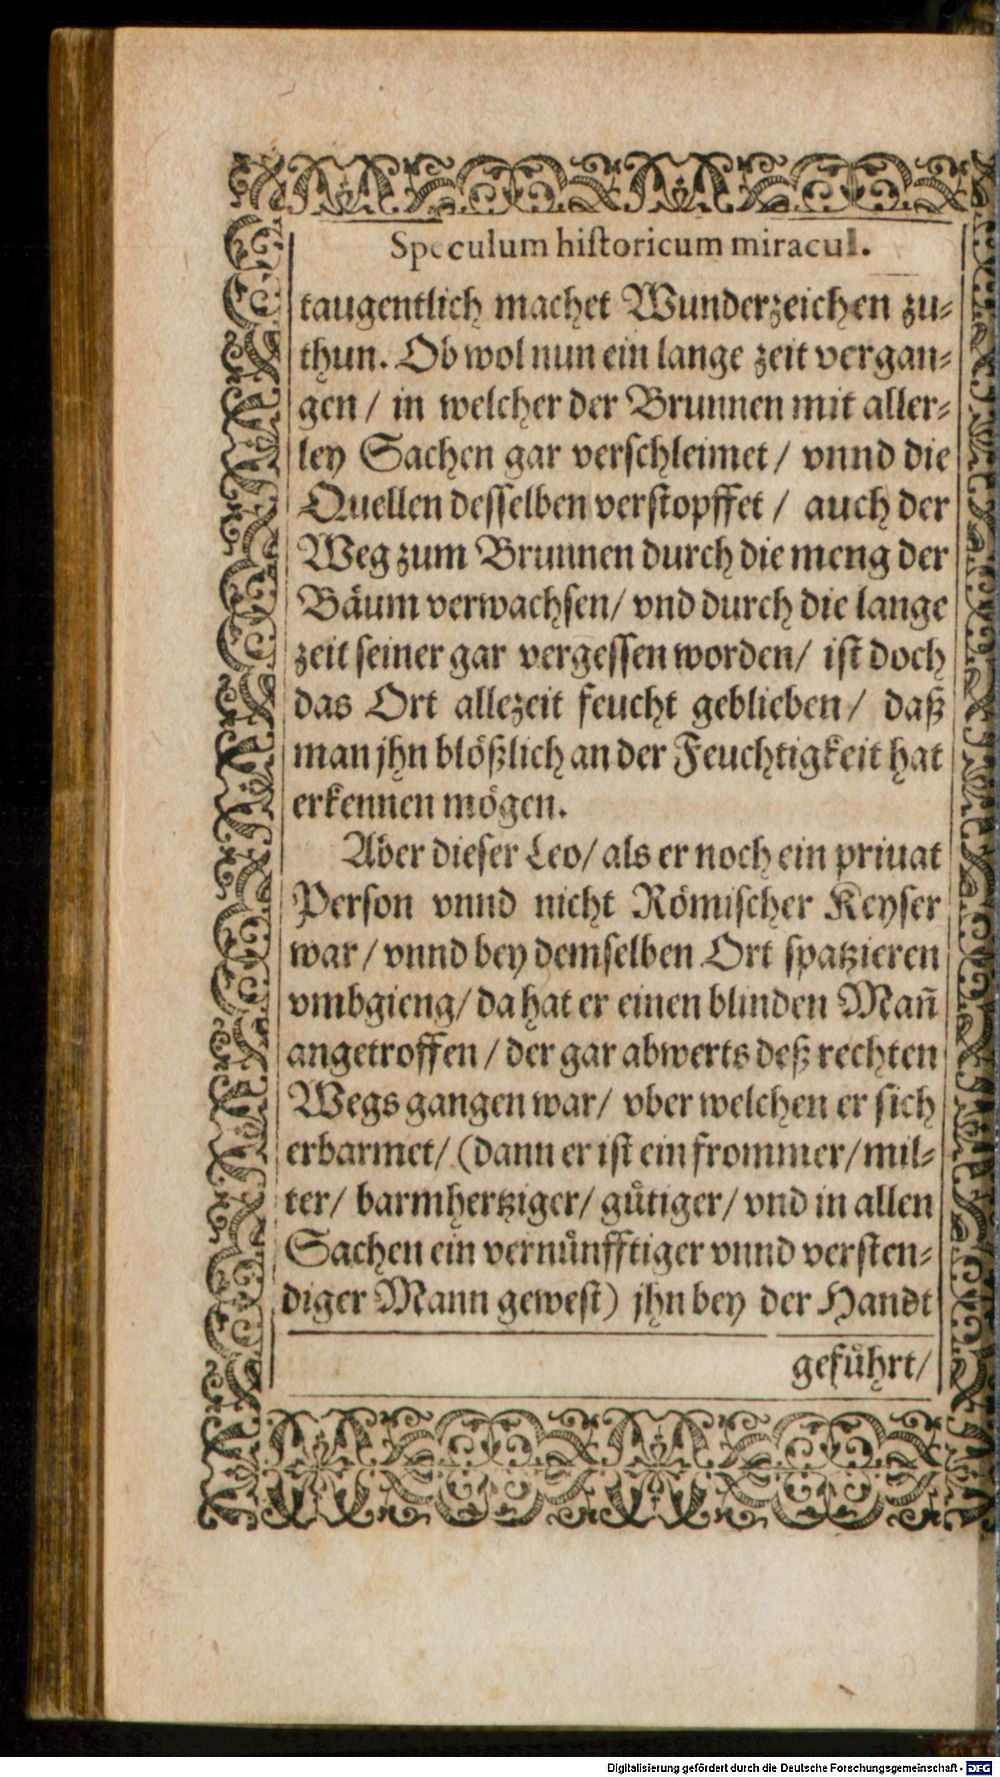 Speculum historicum miracul.
taugentlich machet Wunderzeichen zu⸗
thun. Ob wol nun ein lange zeit vergan⸗
gen / in welcher der Brunnen mit aller⸗
ley Sachen gar verschleimet / vnnd die
Quellen desselben verstopffet / auch der
Weg zum Brunnen durch die meng der
Bäum verwachsen/ vnd durch die lange
zeit seiner gar vergessen worden/ ist doch
das Ort allezeit feucht geblieben/ daß
man jhn blößlich an der Feuchtigkeit hat
erkennen mögen.
Aber dieser Leo/ als er noch ein priuat
Person vnnd nicht Römischer Keyser
war / vnnd bey demselben Ort spatzieren
vmbgieng/ da hat er einen blinden Mañ
angetroffen / der gar abwerts deß rechten
Wegs gangen war/ vber welchen er sich
erbarmet/ (dann er ist ein frommer/ mil⸗
ter/ barmhertziger/ gütiger/ vnd in allen
Sachen ein vernünfftiger vnnd versten⸗
diger Mann gewest) jhn bey der Handt
geführt/
Digitalisierung gefördert durch die Deutsche Forschungsgemeinschaft - DFG